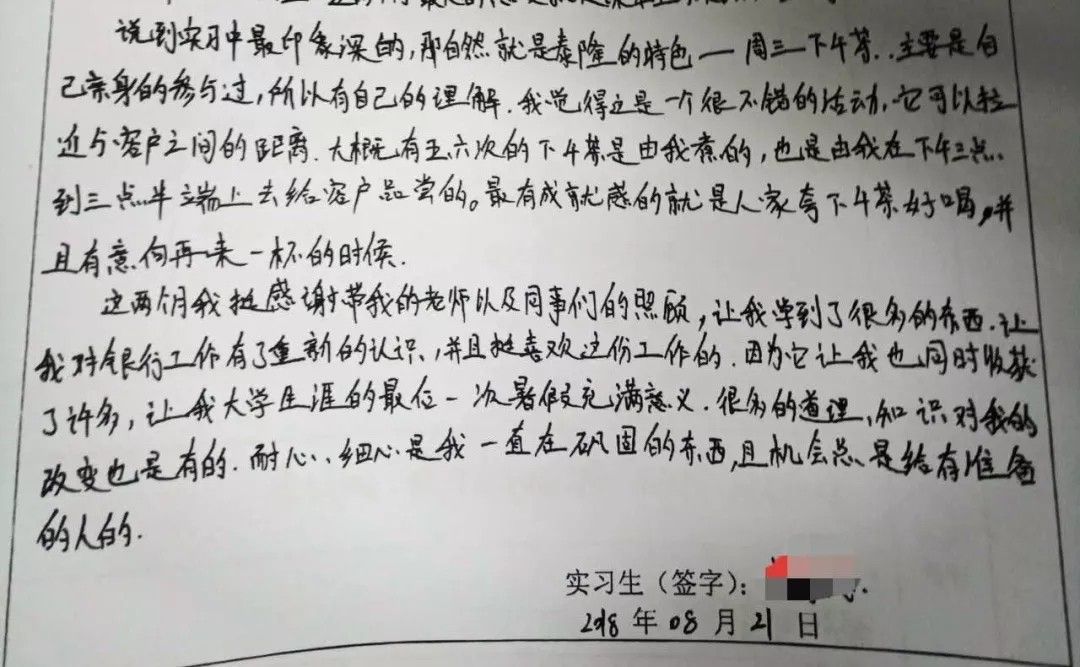 说到实习中最印象深的,那自然就是泰隆的特色—周三下午茶..主要是自
己亲身的参与过,所以有自己的理解.我觉得这是一个很不错的活动,它可以拉
近与客户之间的距离.大概有五六次的下午茶是由我煮的,也是由我在下午三点
到三点半立端上去给客户品尝的。最有成就感的就是人家夸下午茶好喝,并
且有意向再来一杯的时候.
这两个月我挺感谢带我的老师以及同事们的照顾,让我学到了很多的东西.让
我对银行工作有了重新的认识,并且挺喜欢这份工作的.因为它让我也同时收获
了许多,让我大学生涯的最后一次暑假充满意义.很多的道理、知识对我的
改变也是有的.耐心、细心是我一直在巩固的东西,且机会总是给有准备
的人的.
实习生（签字）:
2018年08月21日